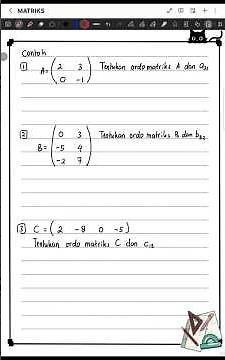 MATRIKS
Contoh
1 A = ( 2 3 ) Tentukan ordo matriks A dan a₂₁
0 -1
2 B = ( 0 3 ) Tentukan ordo matriks B dan b₃₂
-5 4
-2 7
3 C = ( 2 -8 0 -5 )
Tentukan ordo matriks C dan c₁₂